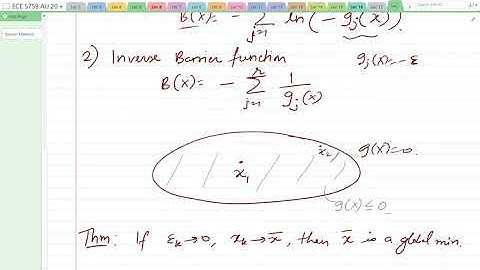 ECE 5759 AU 20
B(x) = - Σ_{j=1} ln(-g_j(x)).
2) Inverse Barrier function g_j(x) = -ε
B(x) = - Σ_{j=1}^{r} 1/g_j(x)
x_1 x_2 g(x)=0.
g(x) ≤ 0
Thm: If ε_k→0, x_k→x̄, then x̄ is a global min.